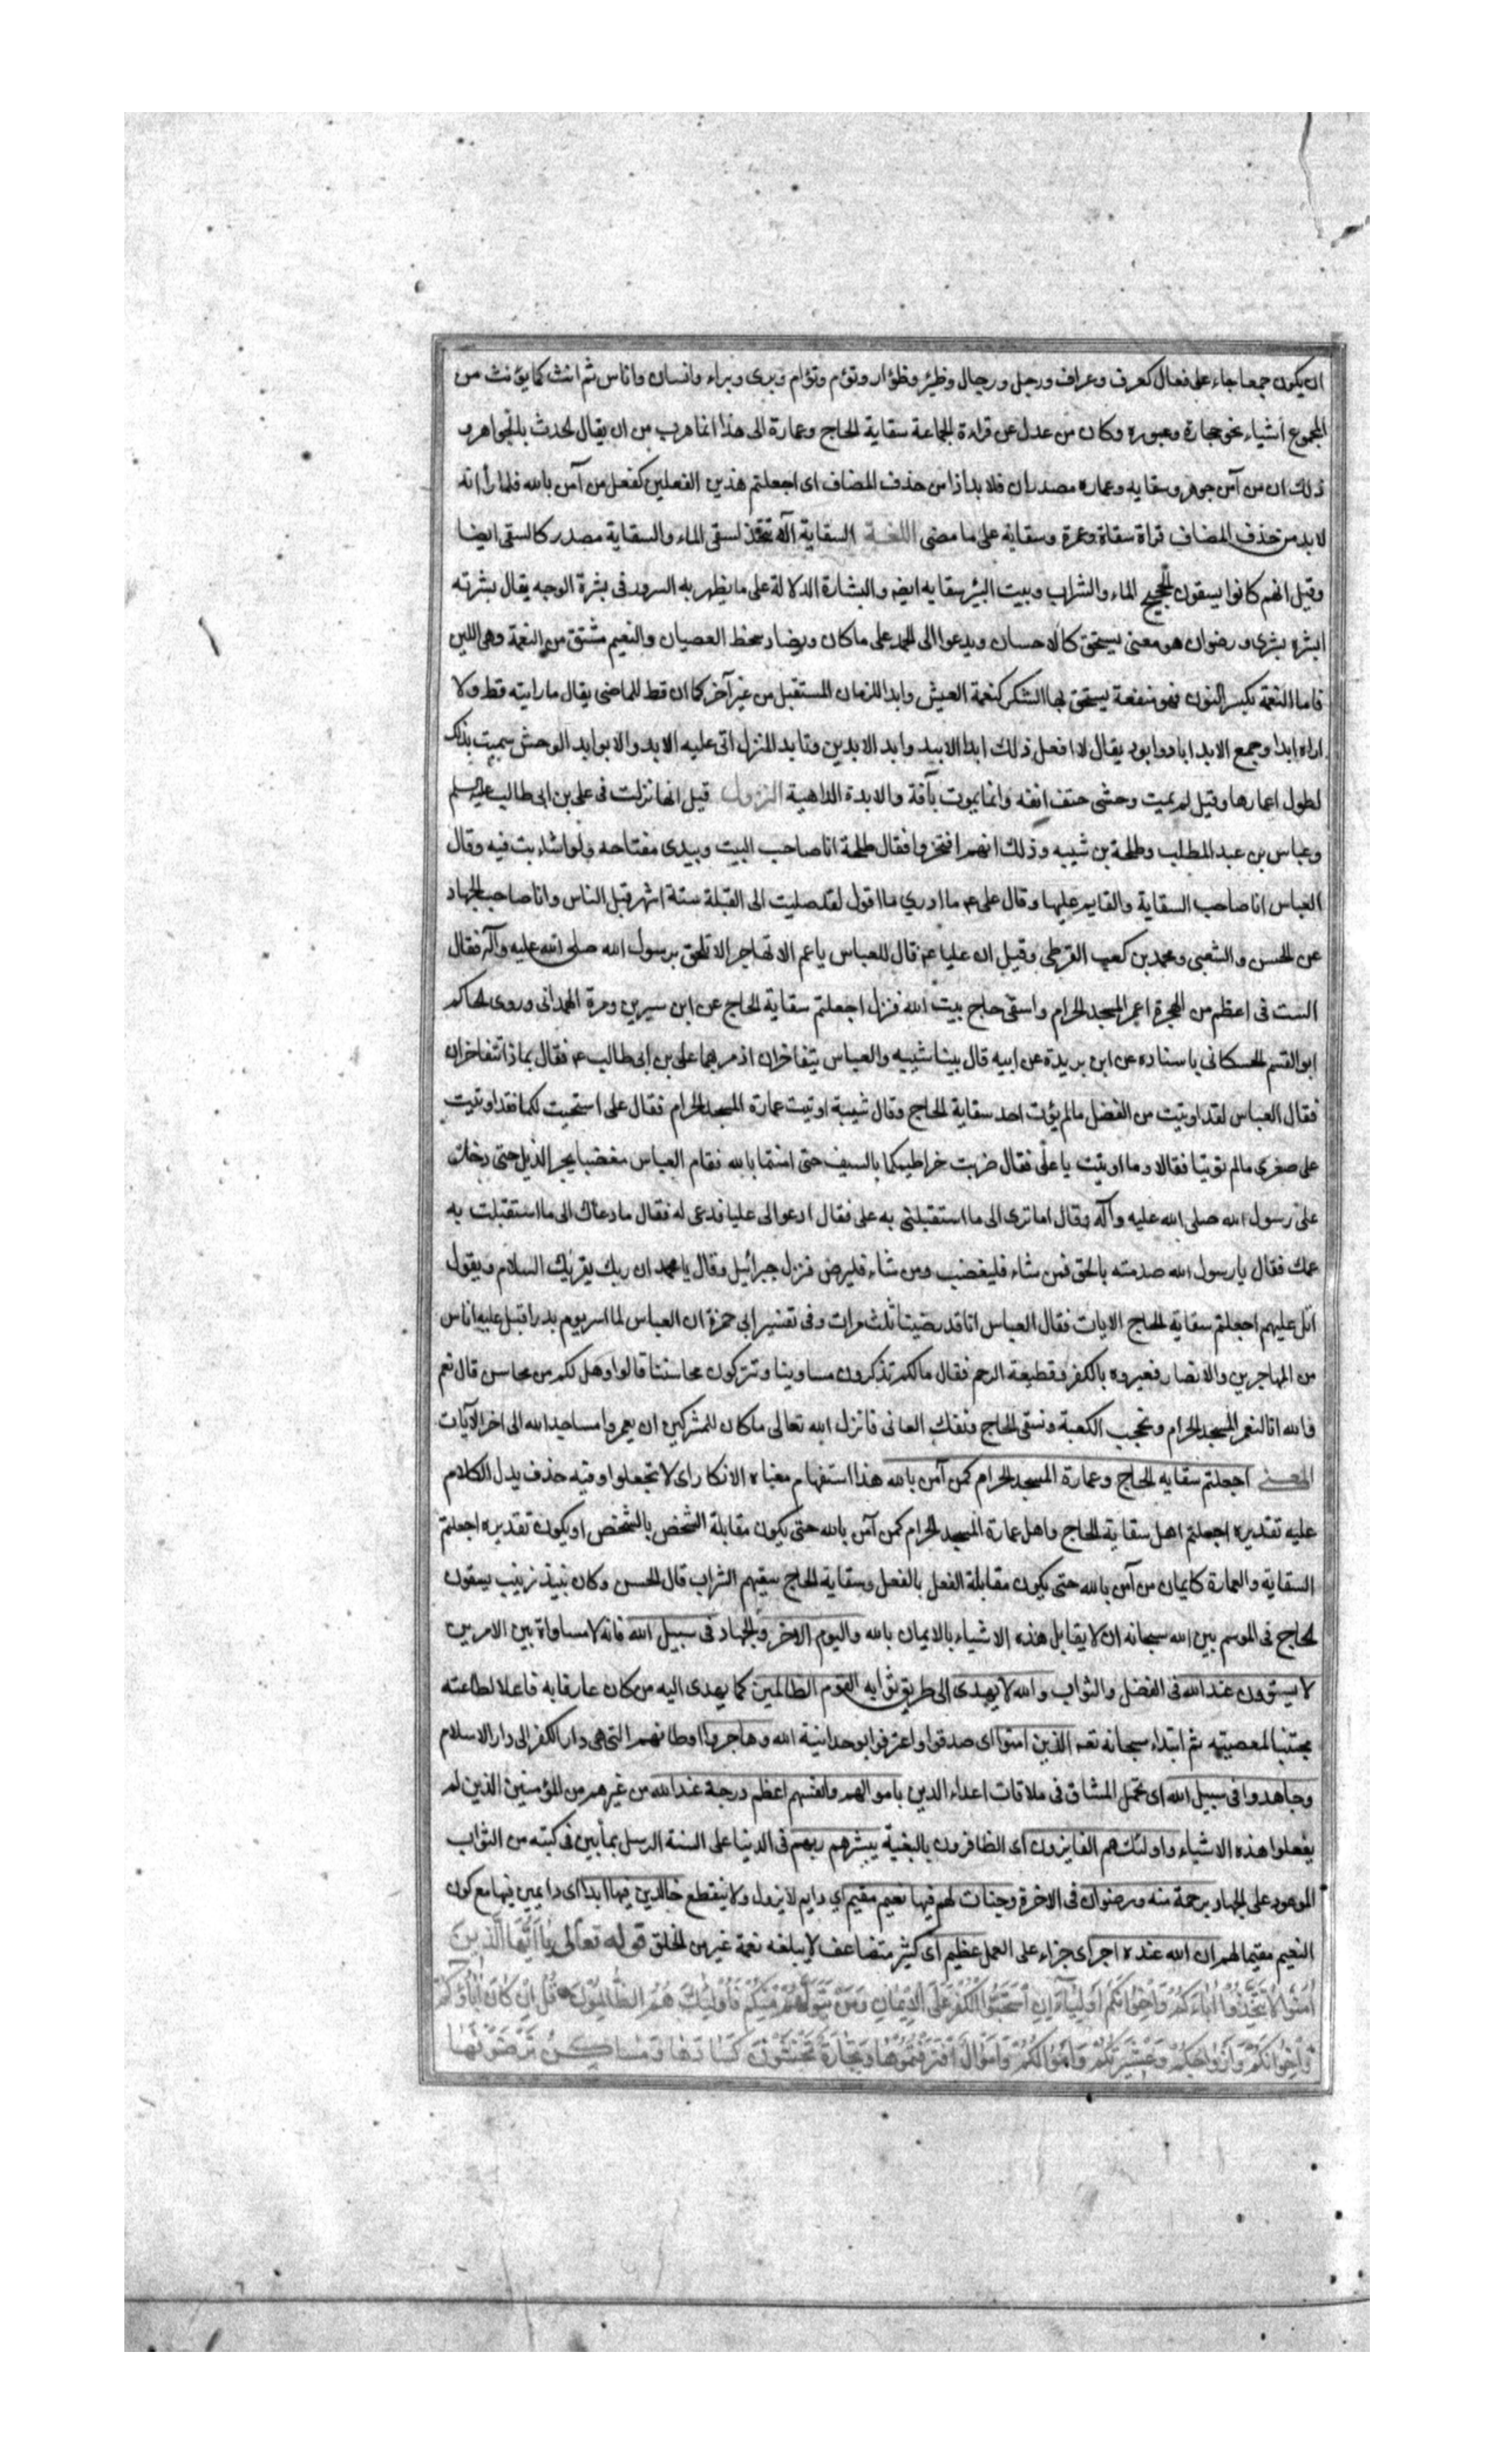 ان يكون جمعا جاء على فعال كعرف وعراف ورجل ورجال وظئر وظؤار وتوم وتؤام وبرى وبراء وانسان واناس ثم انث كما يؤنث من
المجموع أشياء نحو حجارة وعبوره وكان من عدل عن قراءة الجماعة سقاية الحاج وعمارة الى هذا انما هرب من ان يقال لحدث بالجواهر و
ذلك ان من آمن جوهر وسقايه وعماره مصدران فلا بد اذا من حذف المضاف اى اجعلتم هذين الفعلين كفعل من آمن بالله فلما رأ انه
لا بد من حذف المضاف قراة سقاة وعمرة وسقاية على ما مضى اللغة السقاية آلة تتخذ لسقى الماء والسقاية مصدر كالسقى ايضا
وقيل انهم كانوا يسقون الحجيج الماء والشراب وبيت البئر سقايه ايضه والبشارة الدلالة على ما يظهر به السرور فى بشرة الوجه يقال بشرته
ابشره بشرى ورضوان هو معنى يستحق كالاحسان ويدعوا الى الحمد على ما كان ويضاد سخط العصيان والنعيم مشتق من النعمة وهى اللين
فاما النعمة بكسر النون فهو منفعة يستحق بها الشكر كنعمة العيش وابدا للزمان المستقبل من غير آخر كما ان قط للماضى يقال ما رايته قط ولا
اراه ابدا وجمع الابد اباد وابود يقال لا افعل ذلك ابدا الابيد وابد الابدين وتابد المنزل اتى عليه الابد والاوابد الوحش سميت بذلك
لطول اعمارها وقيل لم يمت وحشى حتف انفه وانما يموت بآفة والابدة الداهية النزول قيل انها نزلت فى على بن ابى طالب عليه السلم
وعباس بن عبد المطلب وطلحة بن شيبه وذلك انهم افتخروا فقال طلحة انا صاحب البيت وبيدى مفتاحه ولو اشاء بت فيه وقال
العباس انا صاحب السقاية والقايم عليها وقال على عم ما ادرى ما اقول لقد صليت الى القبلة ستة اشهر قبل الناس وانا صاحب الجهاد
عن الحسن والشعبى ومحمد بن كعب القرظى وقيل ان عليا عم قال للعباس يا عم الا تهاجر الا تلحق برسول الله صلى الله عليه وآله فقال
الست فى اعظم من الهجرة اعمر المسجد الحرام واسقى حاج بيت الله فنزل اجعلتم سقاية الحاج عن ابن سيرين ومرة الهمدانى وروى الحاكم
ابو القسم الحسكانى باسناده عن ابن بريدة عن ابيه قال بينا شيبه والعباس يتفاخران اذ مر بهما على بن ابى طالب عم فقال بماذا تتفاخران
فقال العباس لقد اوتيت من الفضل ما لم يؤت احد سقاية الحاج وقال شيبة اوتيت عمارة المسجد الحرام فقال على استحيت لكما فقد اوتيت
على صغرى ما لم تؤتيا فقالا وما اوتيت يا على فقال ضربت خراطيمكما بالسيف حتى امنتما بالله فقام العباس مغضبا يجر الذيل حتى دخل
على رسول الله صلى الله عليه وآله وقال اما ترى الى ما استقبلنى به على فقال ادعوا لى عليا فدعى له فقال ما دعاك الى ما استقبلت به
عمك فقال يا رسول الله صدمته بالحق فمن شاء فليغضب ومن شاء فليرض فنزل جبرائيل وقال يا محمد ان ربك يقريك السلام ويقول
اتل عليهم اجعلتم سقاية الحاج الايات فقال العباس انا قد رضينا ثلث مرات وفى تفسير ابى حمزة ان العباس لما اسر يوم بدر اقبل عليه اناس
من المهاجرين والانصار فعيروه بالكفر وقطيعة الرحم فقال ما لكم تذكرون مساوينا وتتركون محاسننا قالوا وهل لكم من محاسن قال نعم
فالله انا لنعمر المسجد الحرام ونحجب الكعبة ونسقى الحاج ونفك العانى فانزل الله تعالى ما كان للمشركين ان يعمروا مساجد الله الى اخر الآيات
المعنى اجعلتم سقايه الحاج وعمارة المسجد الحرام كمن آمن بالله هذا استفهام معناه الانكار اى لا تجعلوا وفيه حذف يدل الكلام
عليه تقديره اجعلتم اهل سقاية الحاج واهل عمارة المسجد الحرام كمن آمن بالله حتى يكون مقابلة الشخص بالشخص او يكون تقديره اجعلتم
السقاية والعمارة كايمان من آمن بالله حتى يكون مقابلة الفعل بالفعل وسقاية الحاج سقيهم الشراب قال الحسن وكان نبيذ زبيب يسقون
الحاج فى الموسم بين الله سبحانه ان لا يقابل هذه الاشياء بالايمان بالله واليوم الاخر والجهاد فى سبيل الله فانه لا مساواة بين الامرين
لا يستوون عند الله فى الفضل والثواب والله لا يهدى الى طريق ثوابه القوم الظالمين كما يهدى اليه من كان عارفا به فاعلا لطاعته
مجتنبا لمعصيته ثم ابتداء سبحانه نعم الذين امنوا اى صدقوا واعترفوا بوحدانية الله وهاجروا اوطانهم التى هى دار الكفر الى دار الاسلام
وجاهدوا فى سبيل الله اى تحمل المشاق فى ملاقات اعداء الدين باموالهم وانفسهم اعظم درجة عند الله من غيرهم من المؤمنين الذين لم
يفعلوا هذه الاشياء واولئك هم الفايزون اى الظافرون بالبغية يبشرهم ربهم فى الدنيا على السنة الرسل بما بين فى كتبه من الثواب
الموعود على الجهاد برحمة منه ورضوان فى الاخرة وجنات لهم فيها نعيم مقيم اي دايم لا يزول ولا ينقطع خالدين فيها ابدا اى دايمين فيها مع كون
النعيم مقيما لهم ان الله عنده اجر اى جزاء على العمل عظيم اى كثير متضاعف لا يبلغه نعمة غيره من الخلق قوله تعالى يا ايها الذين
امنوا لا تتخذوا اباءكم واخوانكم اولياء ان استحبوا الكفر على الايمان ومن يتولهم منكم فاولئك هم الظالمون قل ان كان اباؤكم
واخوانكم وازواجكم وعشيرتكم واموالكم واموال اقترفتموها وتجارة تخشون كسادها ومساكن ترضونها